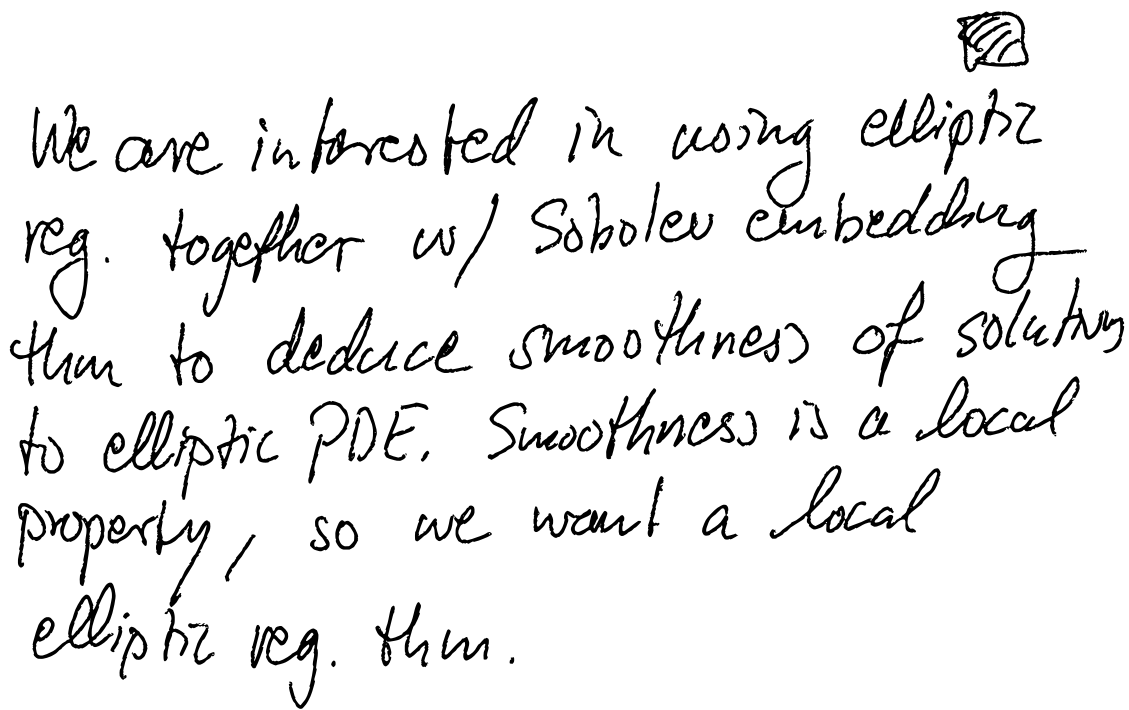 We are interested in using elliptic
reg. together w/ Sobolev embedding
thm to deduce smoothness of solutions
to elliptic PDE. Smoothness is a local
property, so we want a local
elliptic reg. thm.